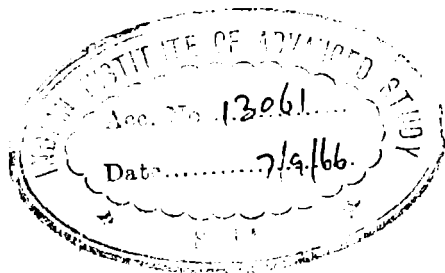 INDIAN INSTITUTE OF ADVANCED STUDY
Acc. No. 13061
Date 7/9/66